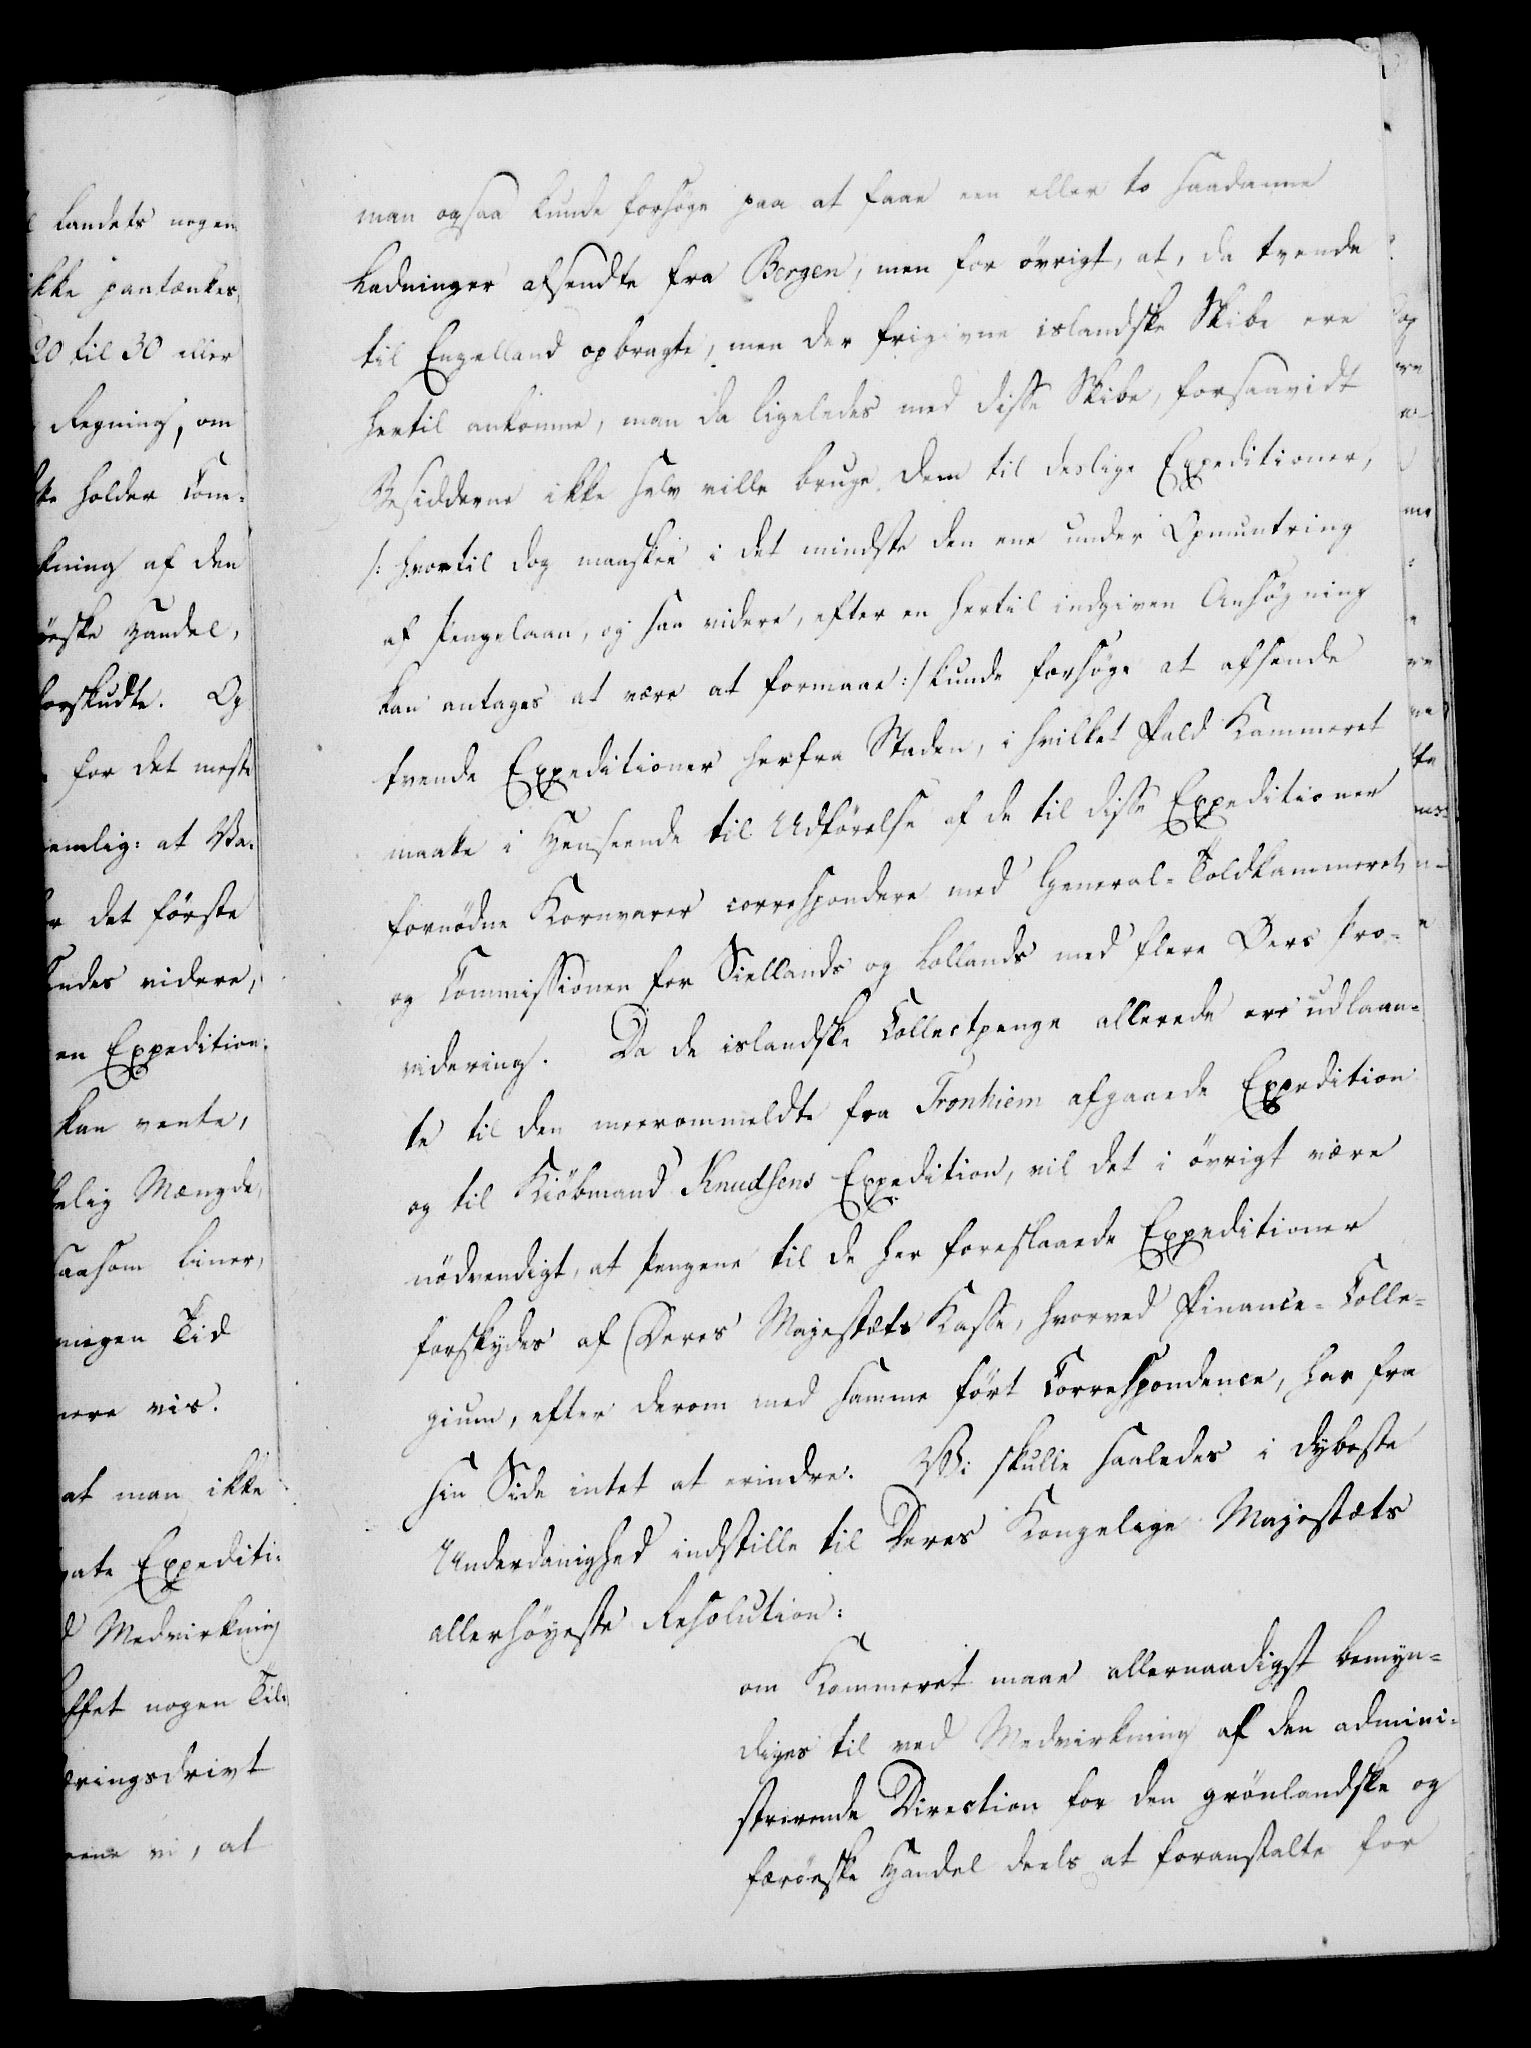 Landets nogen
ikke paatænkes,
20 til 30 eller
Regning, om
holder Com-
kning af den
øeske Handel,
forskudte. Og
for det meste
emlig: at Va-
det første
endes videre,
en Expedition
kan vente,
elig Mængde,
saasom Liner,
megen Tid
mere vis.
at man ikke
vate Expediti-
Medvirkning
ffet nogen Til-
æringsdrivt
ene vi, at
man ogsaa kunde forsøge paa at faae een eller to saadanne
Ladninger afsendte fra Bergen, men for øvrigt, at, da tvende
til Engelland opbragte, men der frigivne islandske Skibe ere
hertil ankomne, man da ligeledes med disse Skibe, forsaavidt
Besidderne ikke selv ville bruge dem til deslige Expeditioner,
/: hvortil dog maaskee i det mindste den ene under Opmuntring
af Pengelaan, og saa videre, efter en hertil indgiven Ansøgning
kan antages at være at formaae :/ kunde forsøge at afsende
tvende Expeditioner herfra Staden, i hvilket Fald Kammeret
maatte i Henseende til Udførelse af de til disse Expeditioner
fornødne Kornvarer correspondere med General-Toldkammeret
og Commissionen for Siellands og Lollands med flere Øers Pro-
videring. Da de islandske Collectpenge allerede ere udlaan-
te til den meerommeldte fra Tronhiem afgaaede Expedition
og til Kiöbmand Knudsens Expedition, vil det i øvrigt være
nödvendigt, at Pengene til de her foreslaaede Expeditioner
forskydes af Deres Majestæts Kasse, hvorved Finance-Colle-
gium, efter derom med samme ført Correspondence, har fra
sin Side intet at erindre. Vi skulle saaledes i dybeste
Underdanighed indstille til Deres Kongelige Majestæts
allerhöyeste Resolution:
om Kammeret maae allernaadigst bemyn-
diges til ved Medvirkning af den admini-
strerende Direction for den grönlandske og
færöeske Handel deels at foranstalte for